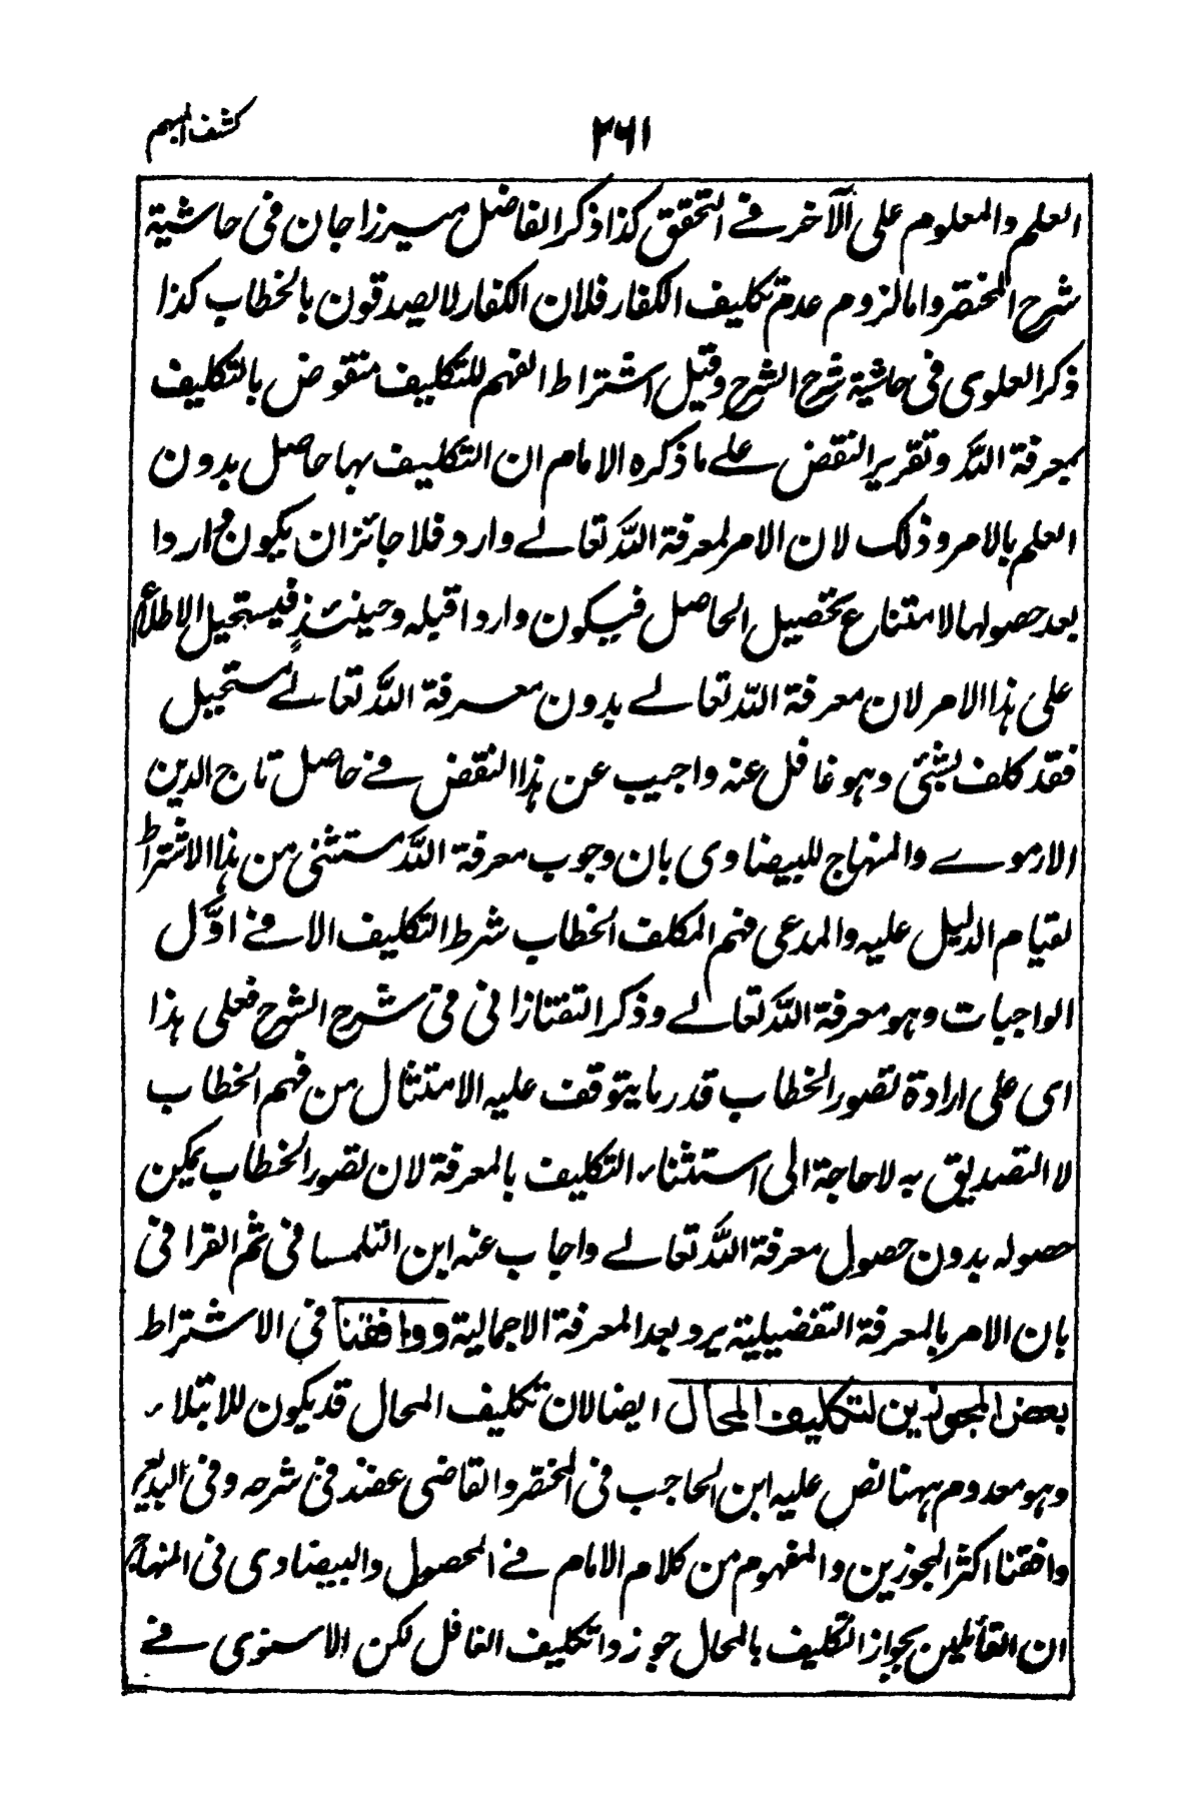 كشف المبهم
٢٦١
العلم والمعلوم على الآخر في التحقق كذا ذكر الفاضل ميرزا جان في حاشية
شرح المختصر واما لزوم عدم تكليف الكفار فلان الكفار لا يصدقون بالخطاب كذا
ذكر العلوى في حاشية شرح الشرح وقيل اشتراط الفهم للتكليف منقوض بالتكليف
بمعرفة الله وتقرير النقض على ما ذكره الامام ان التكليف بها حاصل بدون
العلم بالامر وذلك لان الامر لمعرفة الله تعالى وارد فلا جائز ان يكون واردا
بعد حصولها لامتناع تحصيل الحاصل فيكون واردا قبله وحينئذ فيستحيل الاطلاع
على هذا الامر لان معرفة الله تعالى بدون معرفة الله تعالى مستحيل
فقد كلف بشئ وهو غافل عنه واجيب عن هذا النقض في حاصل تاج الدين
الارموي والمنهاج للبيضاوى بان وجوب معرفة الله مستثنى من هذا الاشتراط
لقيام الدليل عليه والمدعى فهم المكلف الخطاب شرط التكليف الا في اوّل
الواجبات وهو معرفة الله تعالى وذكر التفتازانى في شرح الشرح فعلى هذا
اى على ارادة تصور الخطاب قدر ما يتوقف عليه الامتثال من فهم الخطاب
لا التصديق به لا حاجة الى استثناء التكليف بالمعرفة لان تصور الخطاب يمكن
حصوله بدون حصول معرفة الله تعالى واجاب عنه ابن التلمسانى ثم القرافى
بان الامر بالمعرفة التفضيلية يرد بعد المعرفة الاجمالية ووافقنا في الاشتراط
بعض المجوزين لتكليف المحال ايضا لان تكليف المحال قد يكون للابتلاء
وهو معدوم ههنا نص عليه ابن الحاجب في المختصر والقاضى عضد في شرحه وفي البديع
وافقنا اكثر المجوزين والمفهوم من كلام الامام في المحصول والبيضاوى في المنهاج
ان القائلين بجواز التكليف بالمحال جوزوا تكليف الغافل لكن الاسنوى في